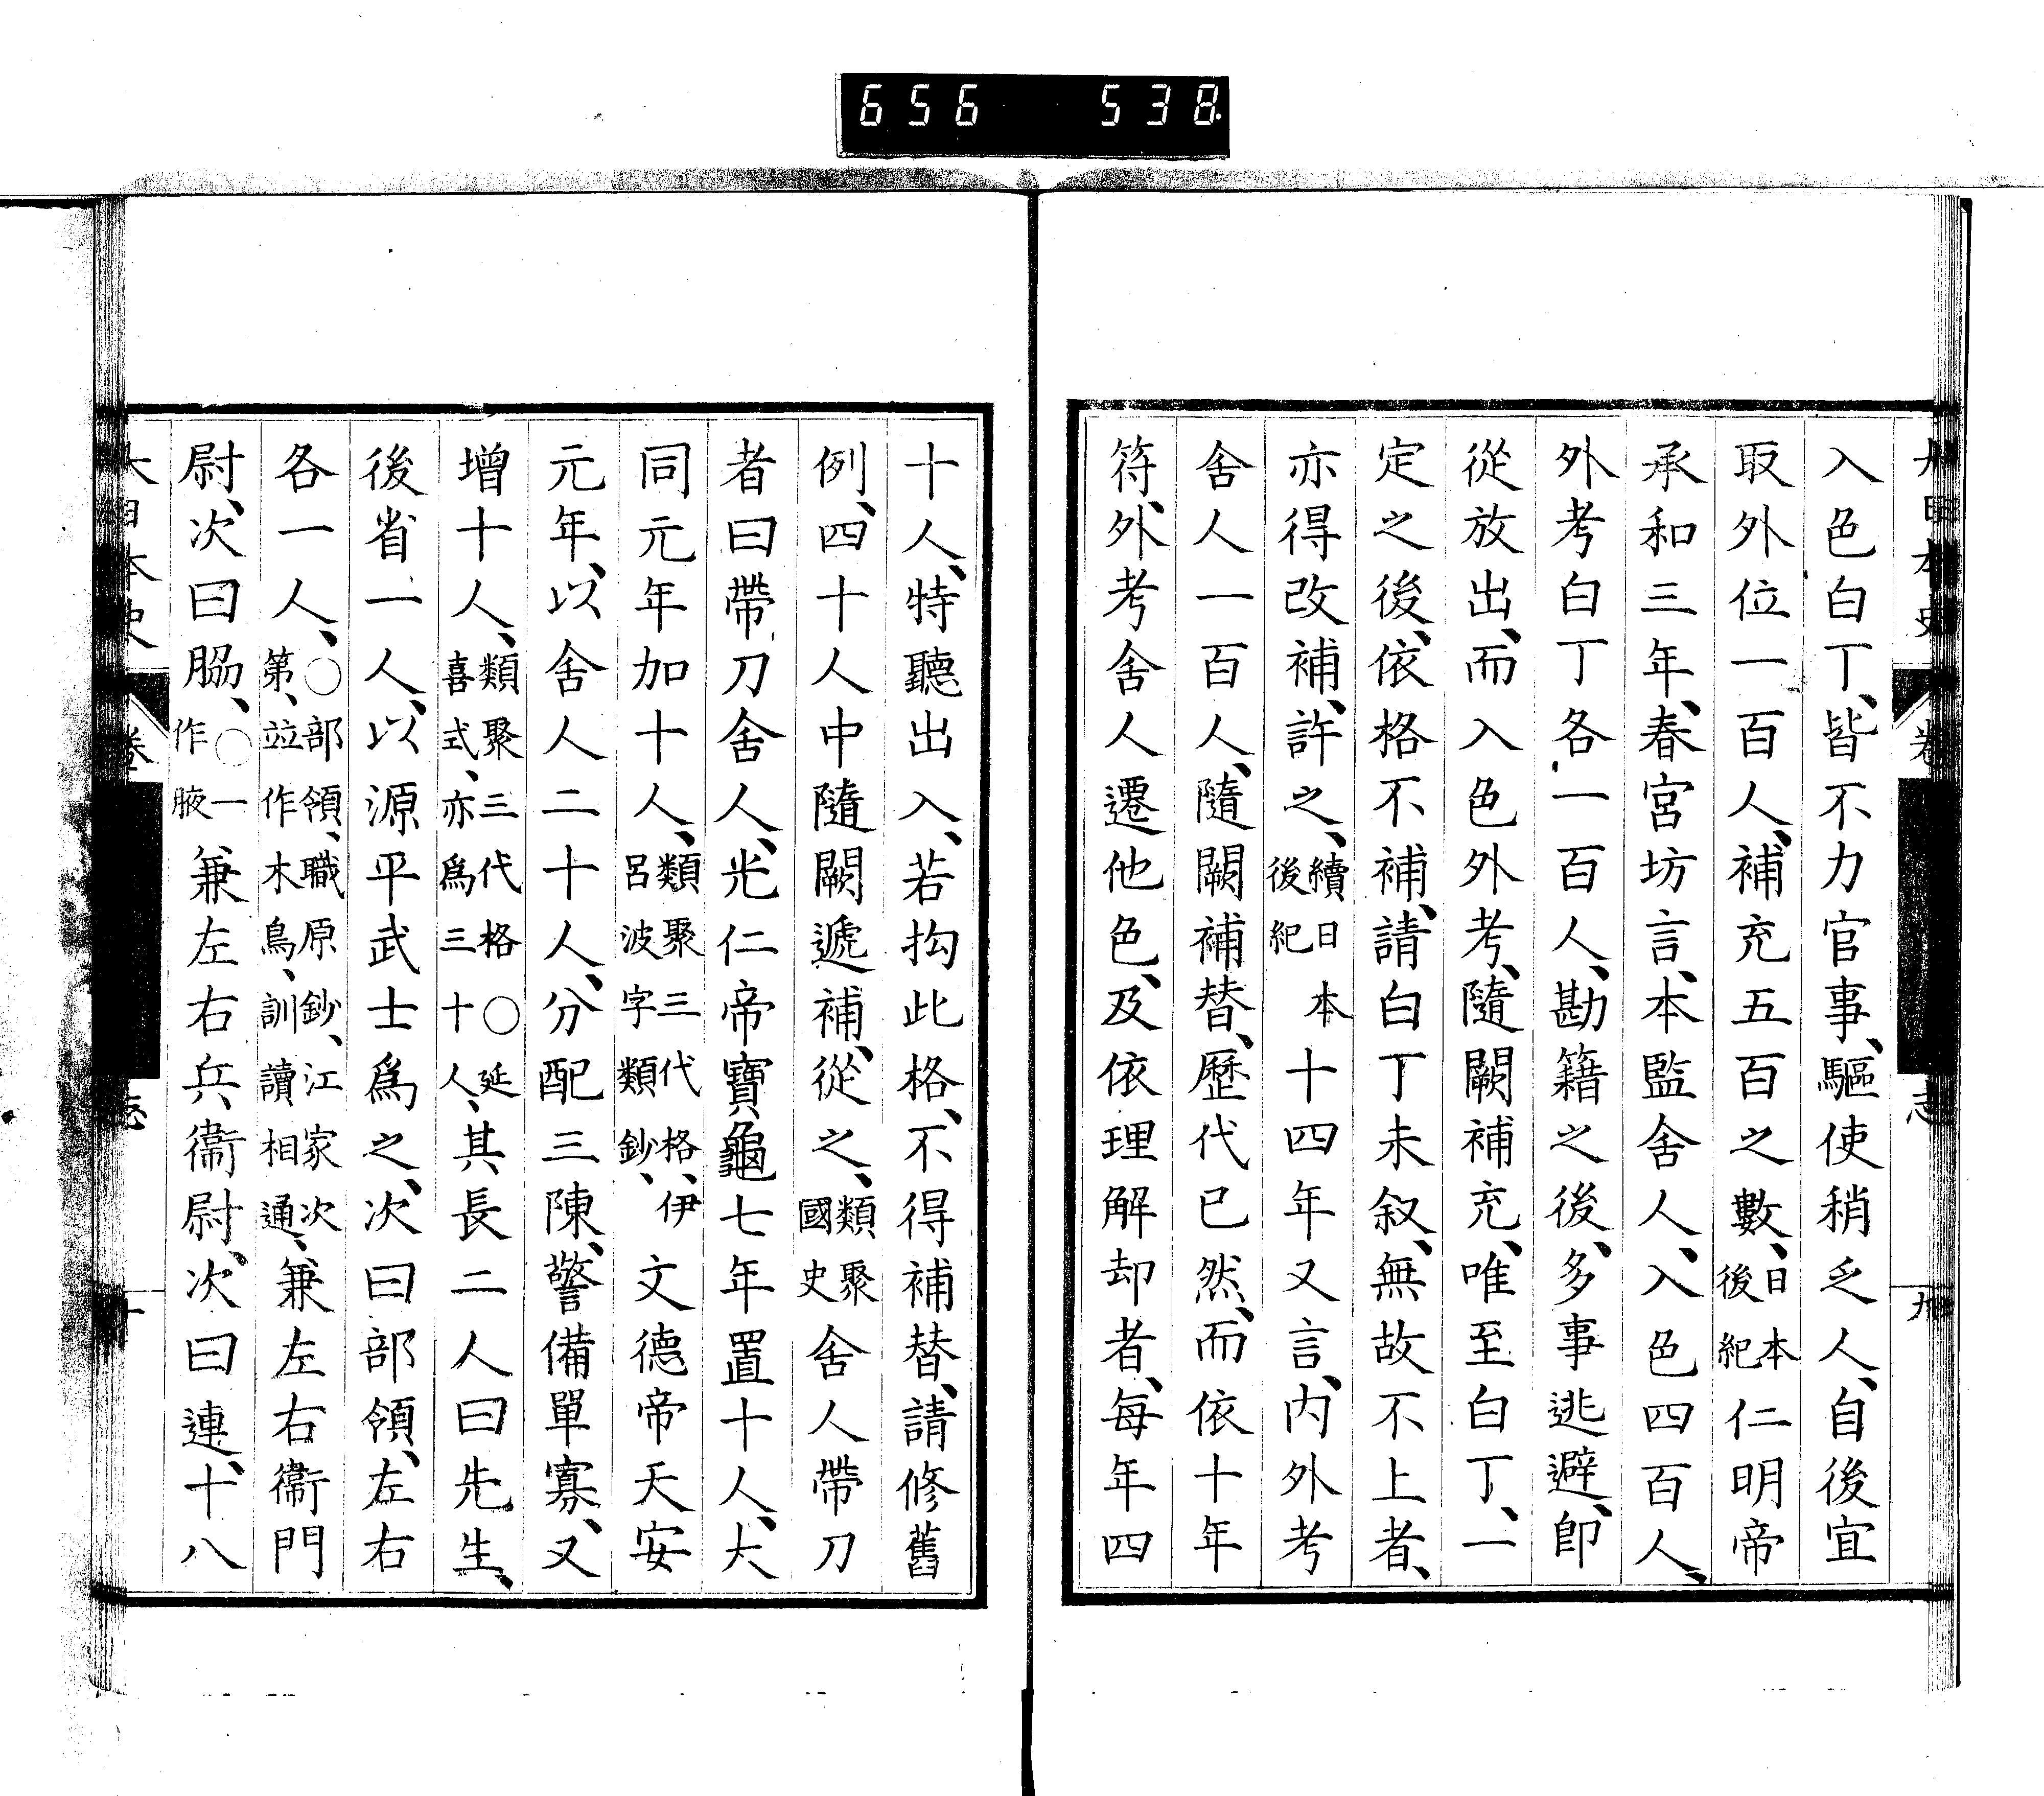 656 538
大日本史 卷 志 九
入色白丁、皆不力官事、驅使稍乏人、自後宜
取外位一百人、補充五百之數、日本後紀仁明帝
承和三年、春宮坊言、本監舍人、入色四百人、
外考白丁各一百人、勘籍之後、多事逃避、卽
從放出、而入色外考、隨闕補充、唯至白丁、一
定之後、依格不補、請白丁未叙、無故不上者、
亦得改補、許之、續日本後紀十四年又言、內外考
舍人一百人、隨闕補替、歷代已然、而依十年
符、外考舍人遷他色、及依理解却者、每年四
十人、特聽出入、若拘此格、不得補替、請修舊
例、四十人中隨闕遞補、從之、類聚國史舍人帶刀
者曰帶刀舍人、光仁帝寶龜七年置十人、大
同元年加十人、類聚三代格、伊呂波字類鈔、文德帝天安
元年、以舍人二十人、分配三陳、警備單寡、又
增十人、類聚三代格〇延喜式、亦爲三十人、其長二人曰先生、
後省一人、以源平武士爲之、次曰部領、左右
各一人、〇部領、職原鈔、江家次第、竝作木鳥、訓讀相通、兼左右衞門
尉、次曰脇、〇一作腋兼左右兵衞尉、次曰連、十八
大日本史 卷 志 十